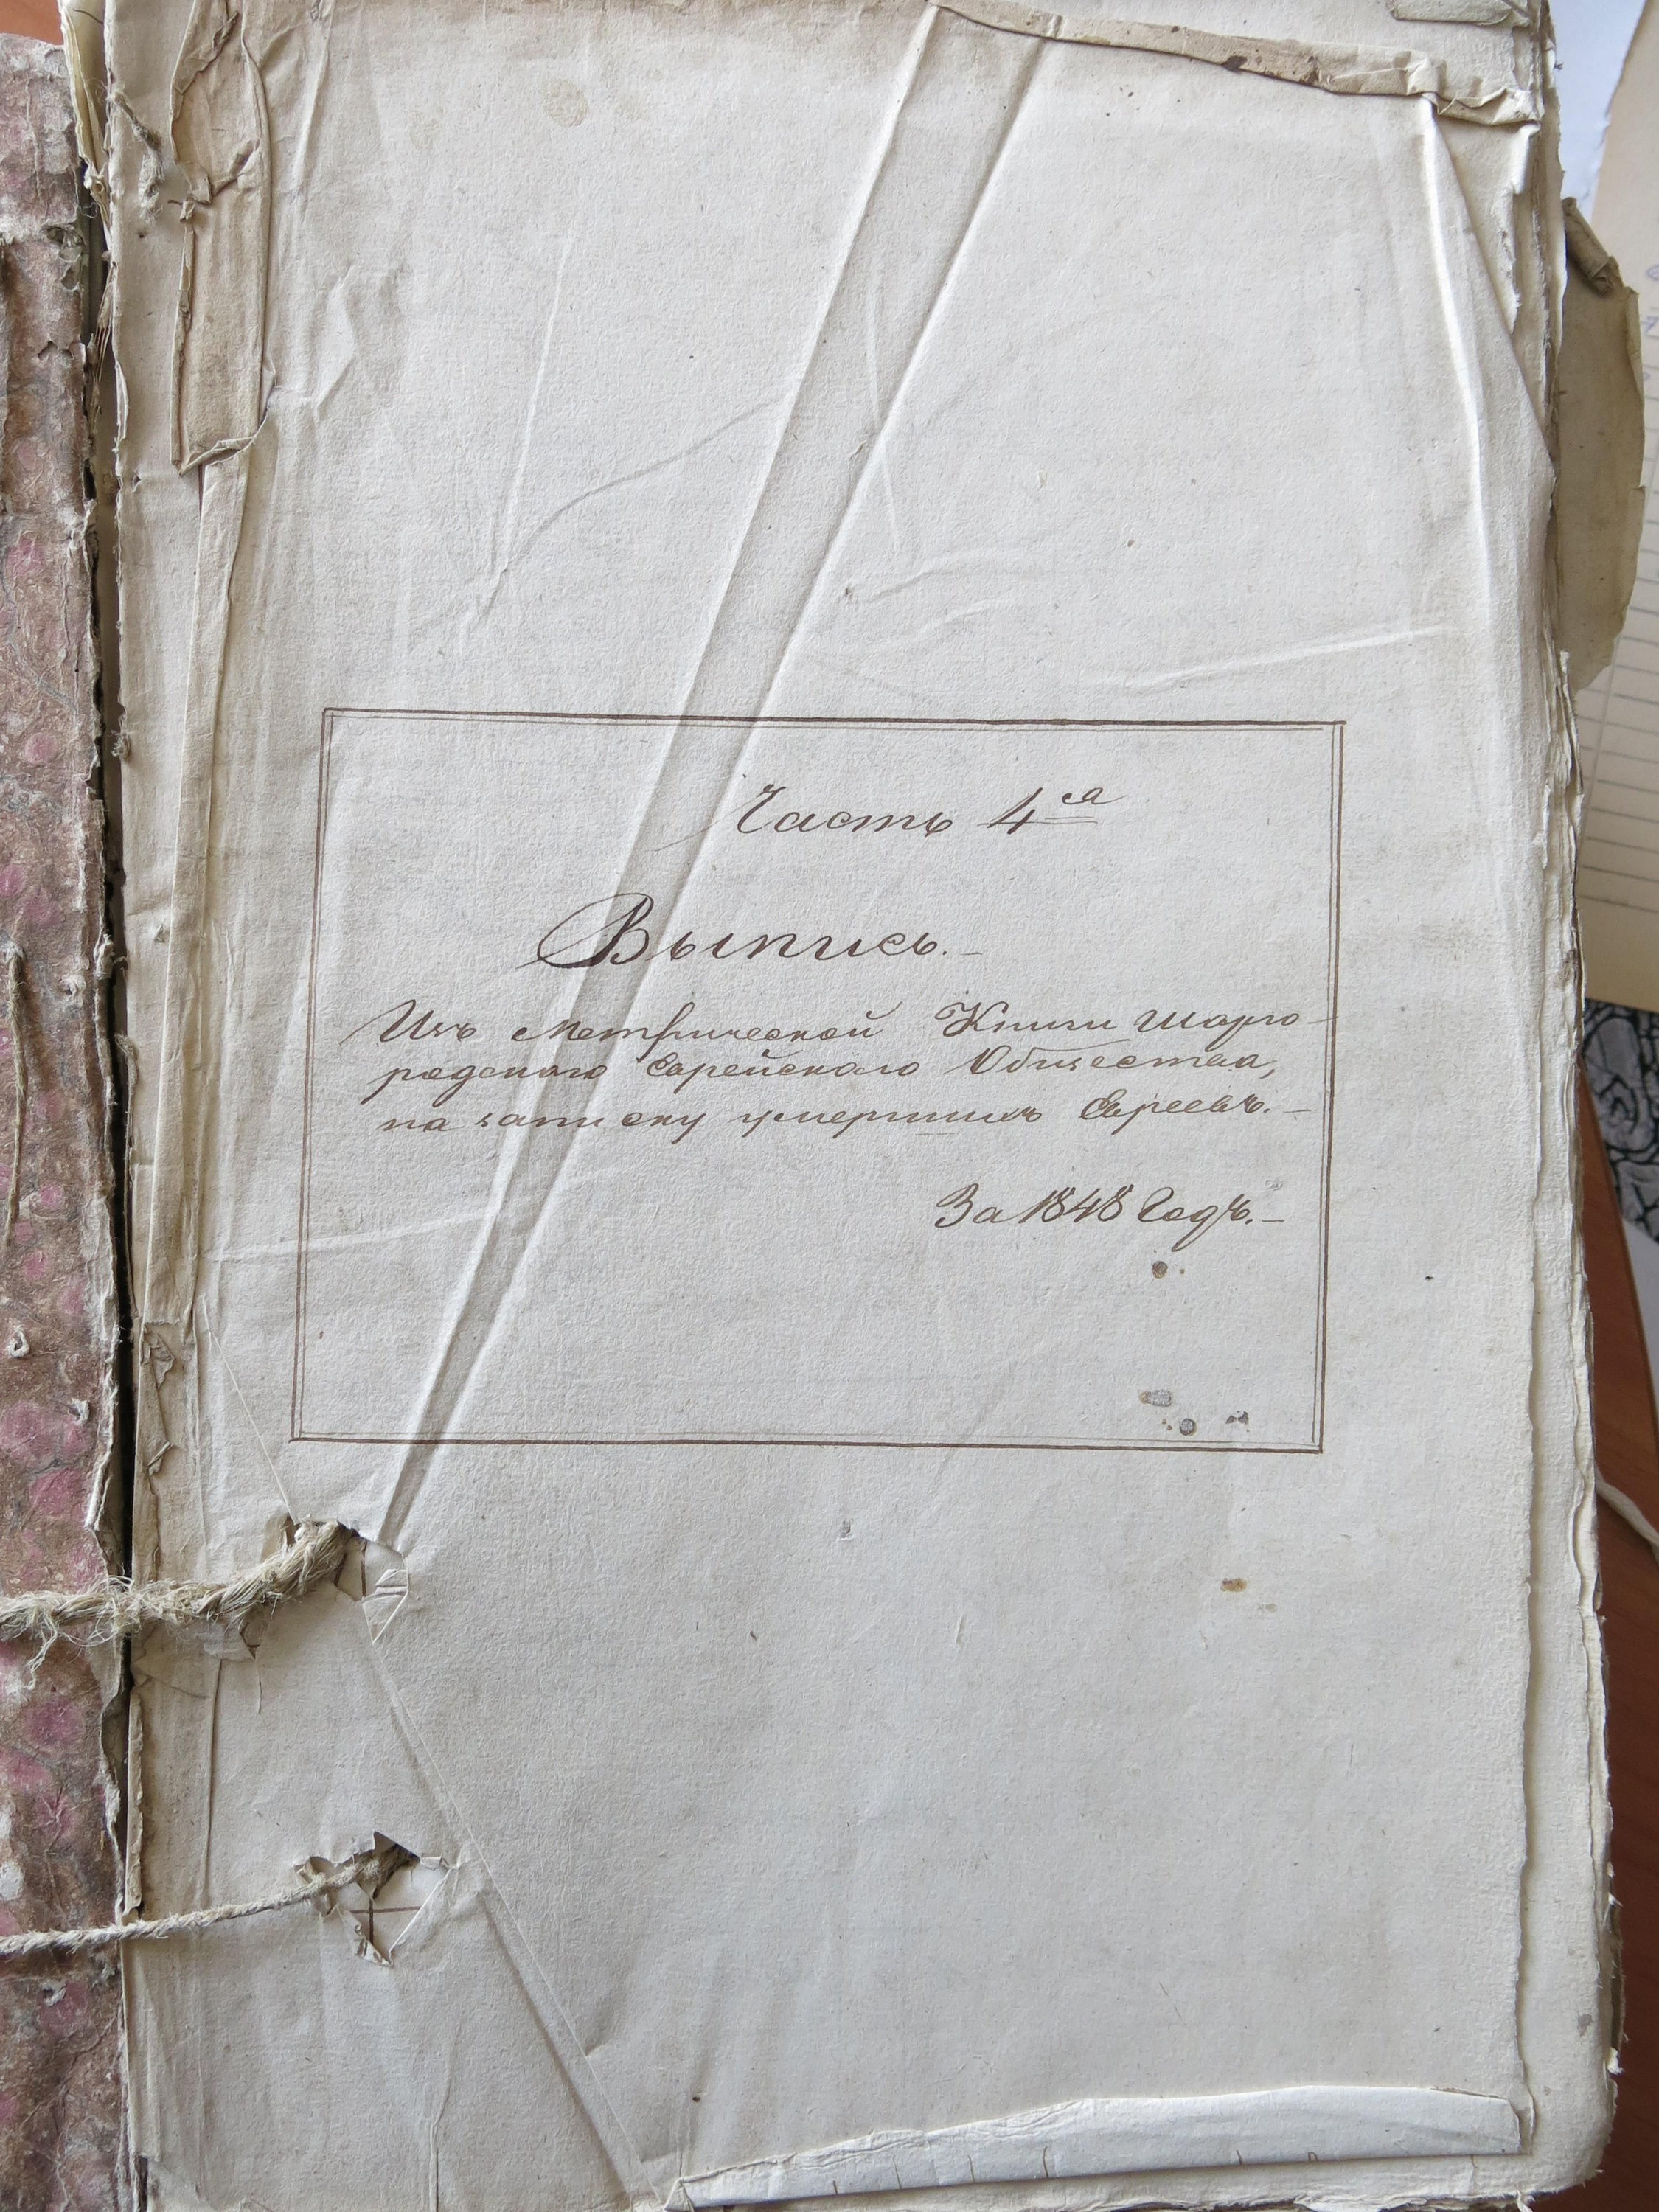 Часть 4ая
Выпись.-
Изъ Метрической Книги Шарго-
родскаго Еврейскаго Общества,
на записку умершихъ Евреевъ.-
За 1848 Годъ.-